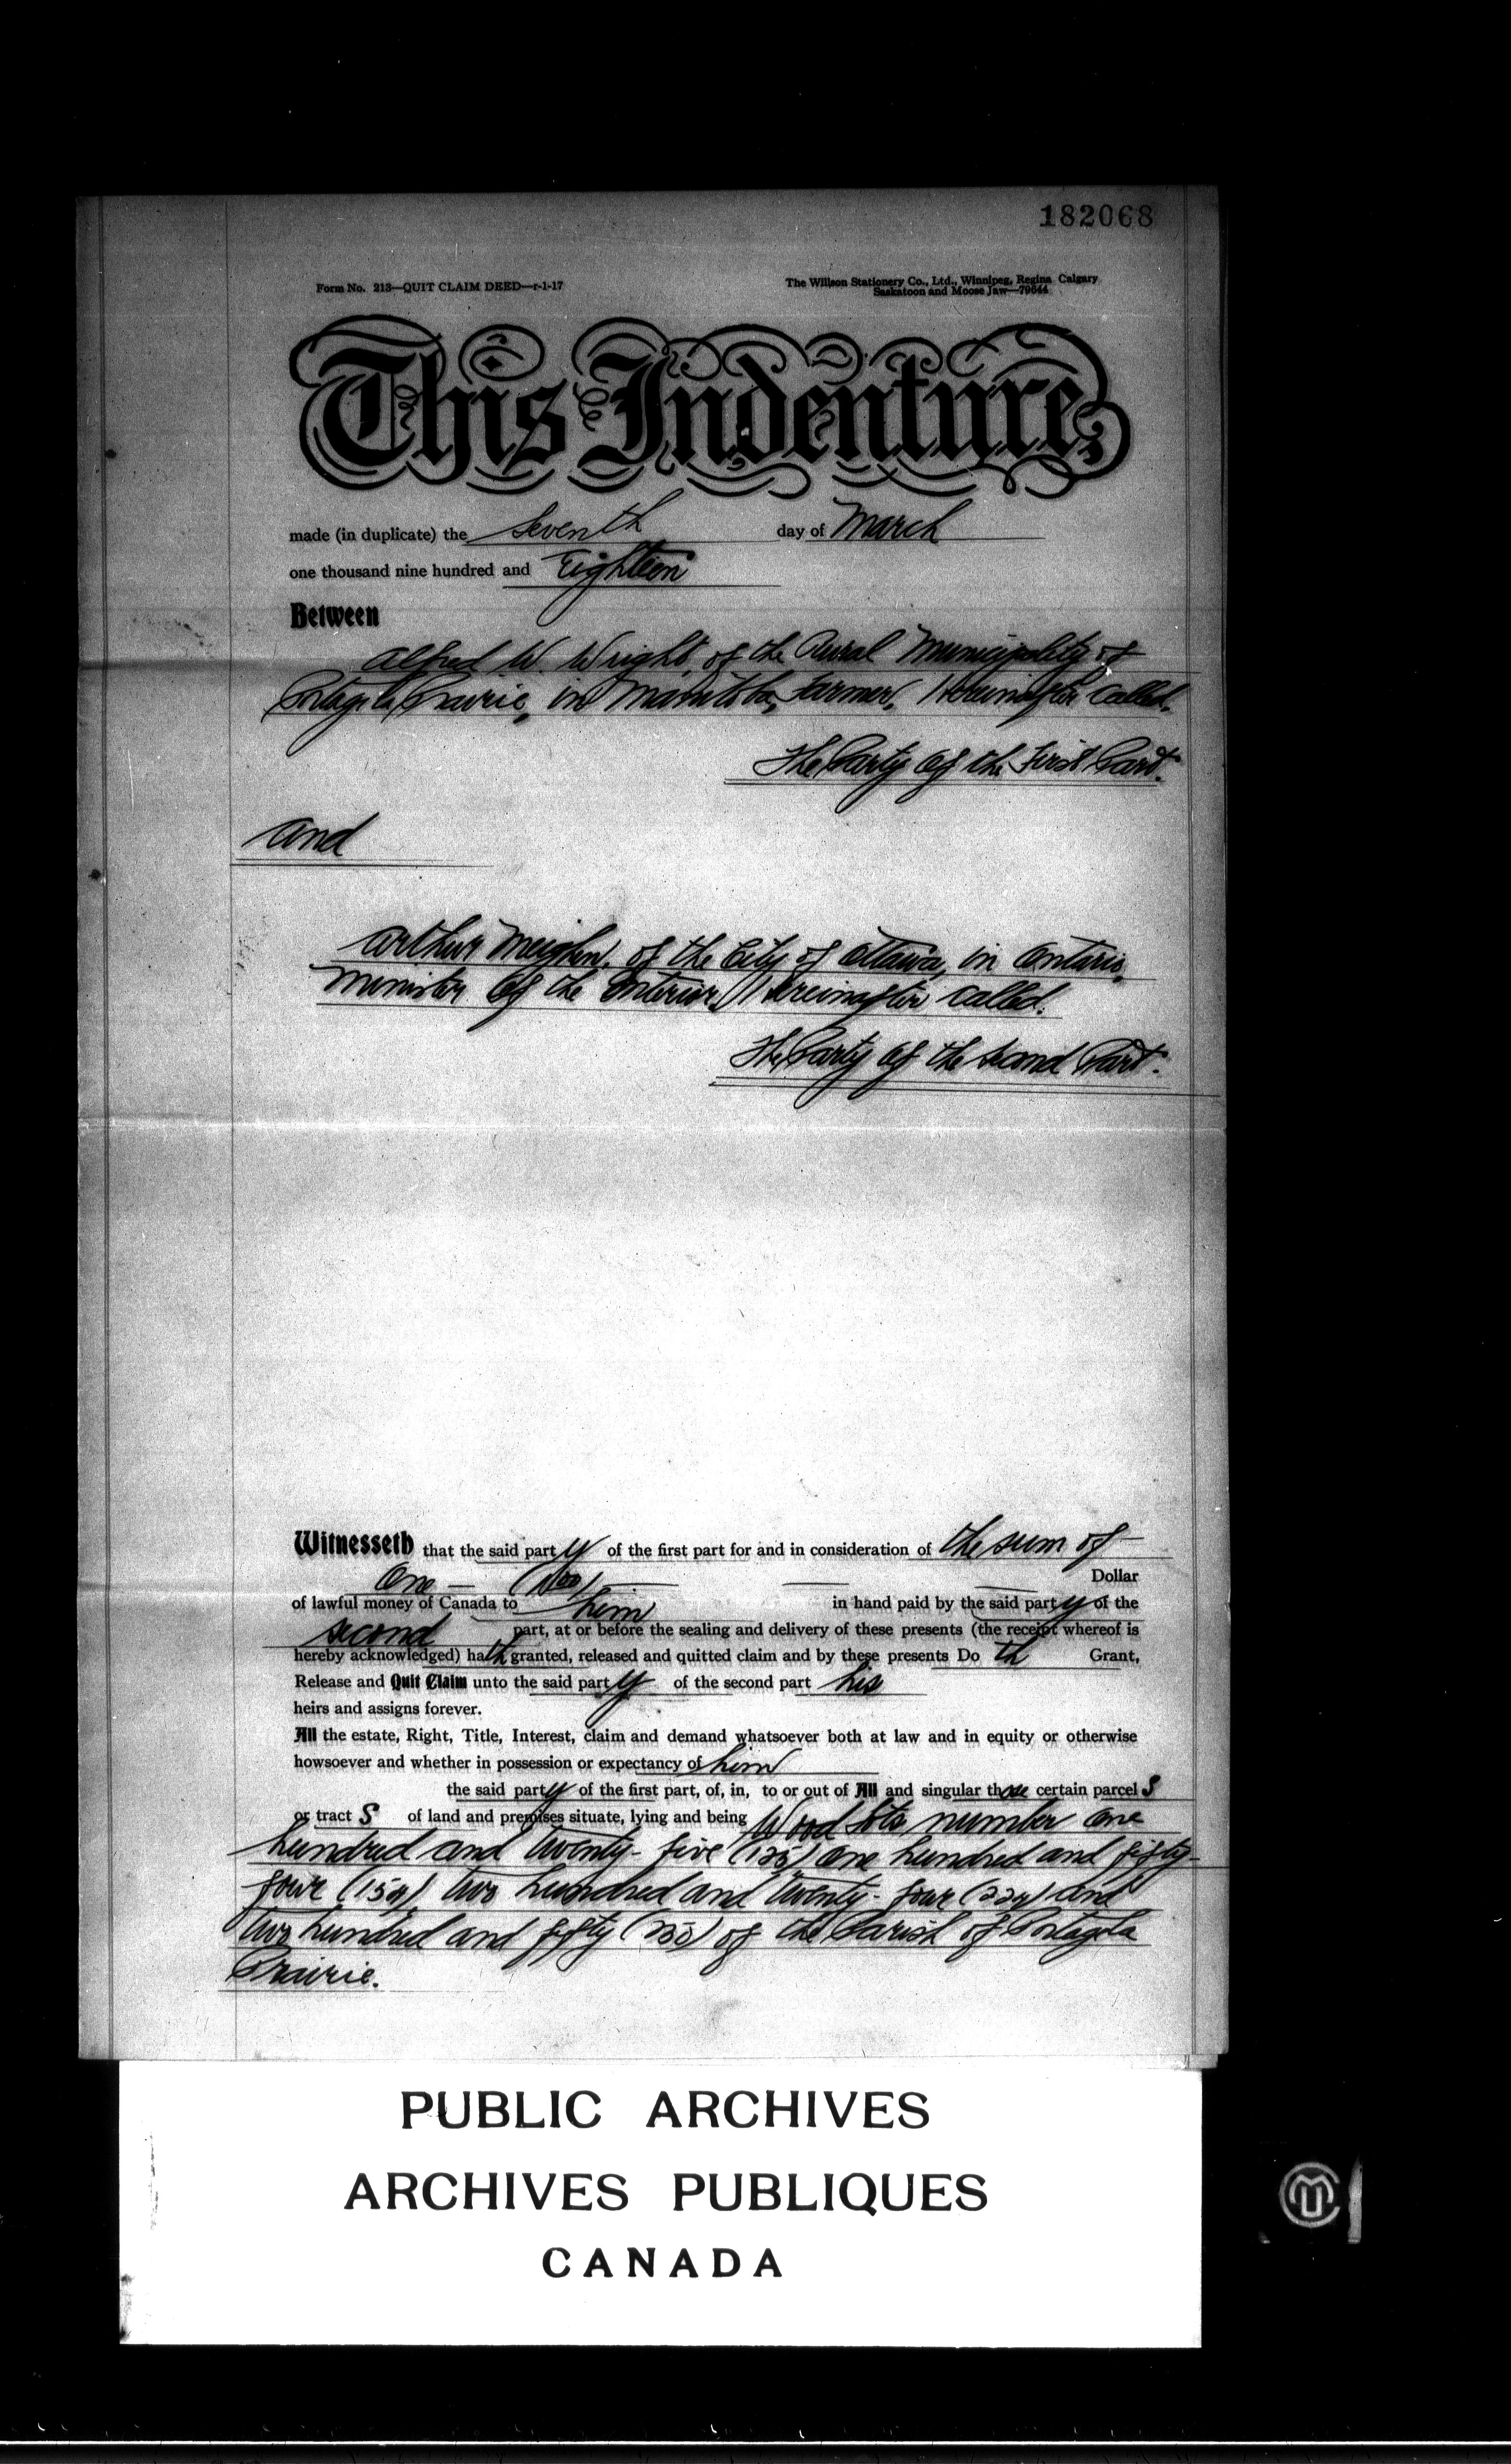 182068
Form No. 213—QUIT CLAIM DEED—r-1-17
The Willson Stationery Co., Ltd., Winnipeg, Regina Calgary
Saskatoon and Moose Jaw—79644
This Indenture
made (in duplicate) the seventh day of March
one thousand nine hundred and Eighteen
Between
Alfred W. Wright, of the Rural Municipality of
Portage la Prairie, in Manitoba, Farmer, Hereinafter called.
The Party of the First Part.
and
Arthur Meighen, of the City of Ottawa, in Ontario,
Minister of the Interior, Hereinafter called.
The Party of the Second Part.
Witnesseth that the said party of the first part for and in consideration of the sum of
One — (1.00) — Dollar
of lawful money of Canada to him in hand paid by the said party of the
second part, at or before the sealing and delivery of these presents (the receipt whereof is
hereby acknowledged) hath granted, released and quitted claim and by these presents Do th Grant,
Release and Quit Claim unto the said party of the second part his
heirs and assigns forever.
All the estate, Right, Title, Interest, claim and demand whatsoever both at law and in equity or otherwise
howsoever and whether in possession or expectancy of him
the said party of the first part, of, in, to or out of All and singular those certain parcels
or tract s of land and premises situate, lying and being Wood lots number one
hundred and twenty-five (125) one hundred and fifty-
four (154) two hundred and twenty-four (224) and
two hundred and fifty (250) of the Parish of Portage la
Prairie.
PUBLIC ARCHIVES
ARCHIVES PUBLIQUES
CANADA